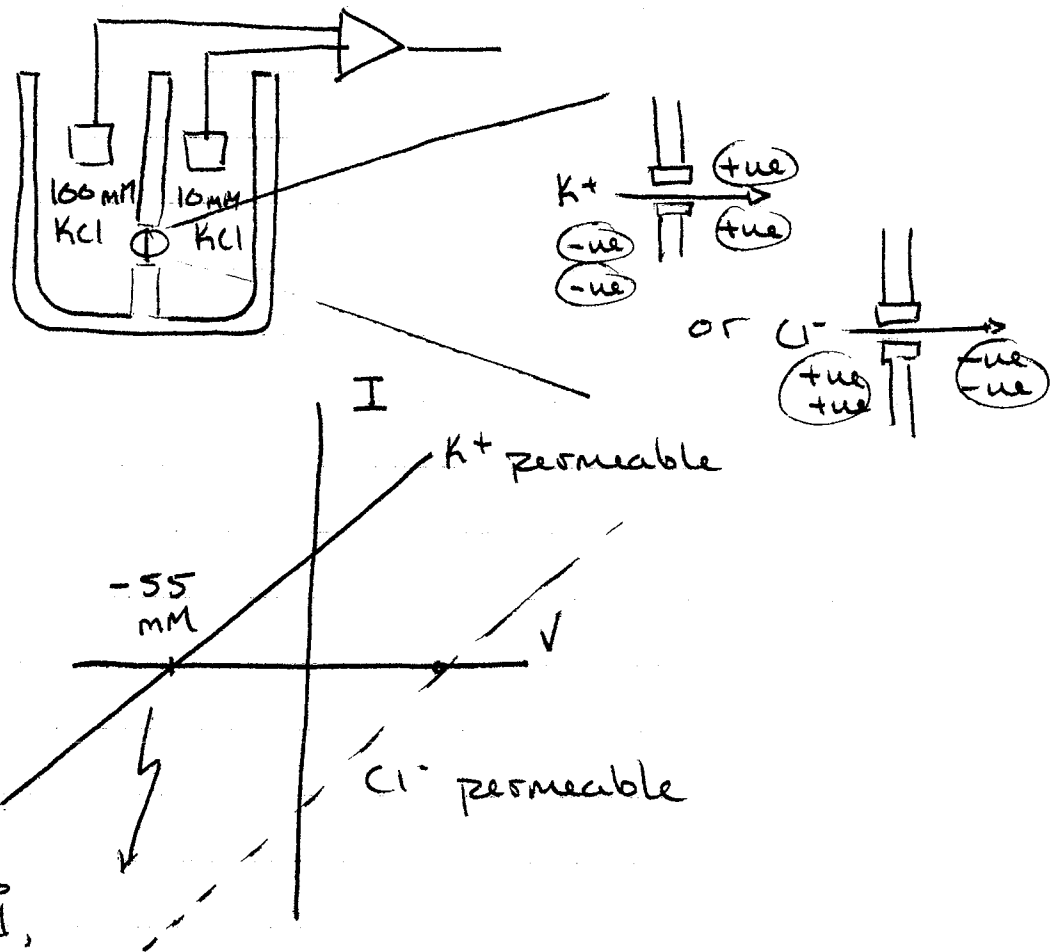 100 mM
KCl
10 mM
KCl
K+
+ue
+ue
-ue
-ue
or Cl-
+ue
+ue
-ue
-ue
I
K+ permeable
-55
mM
V
Cl- permeable